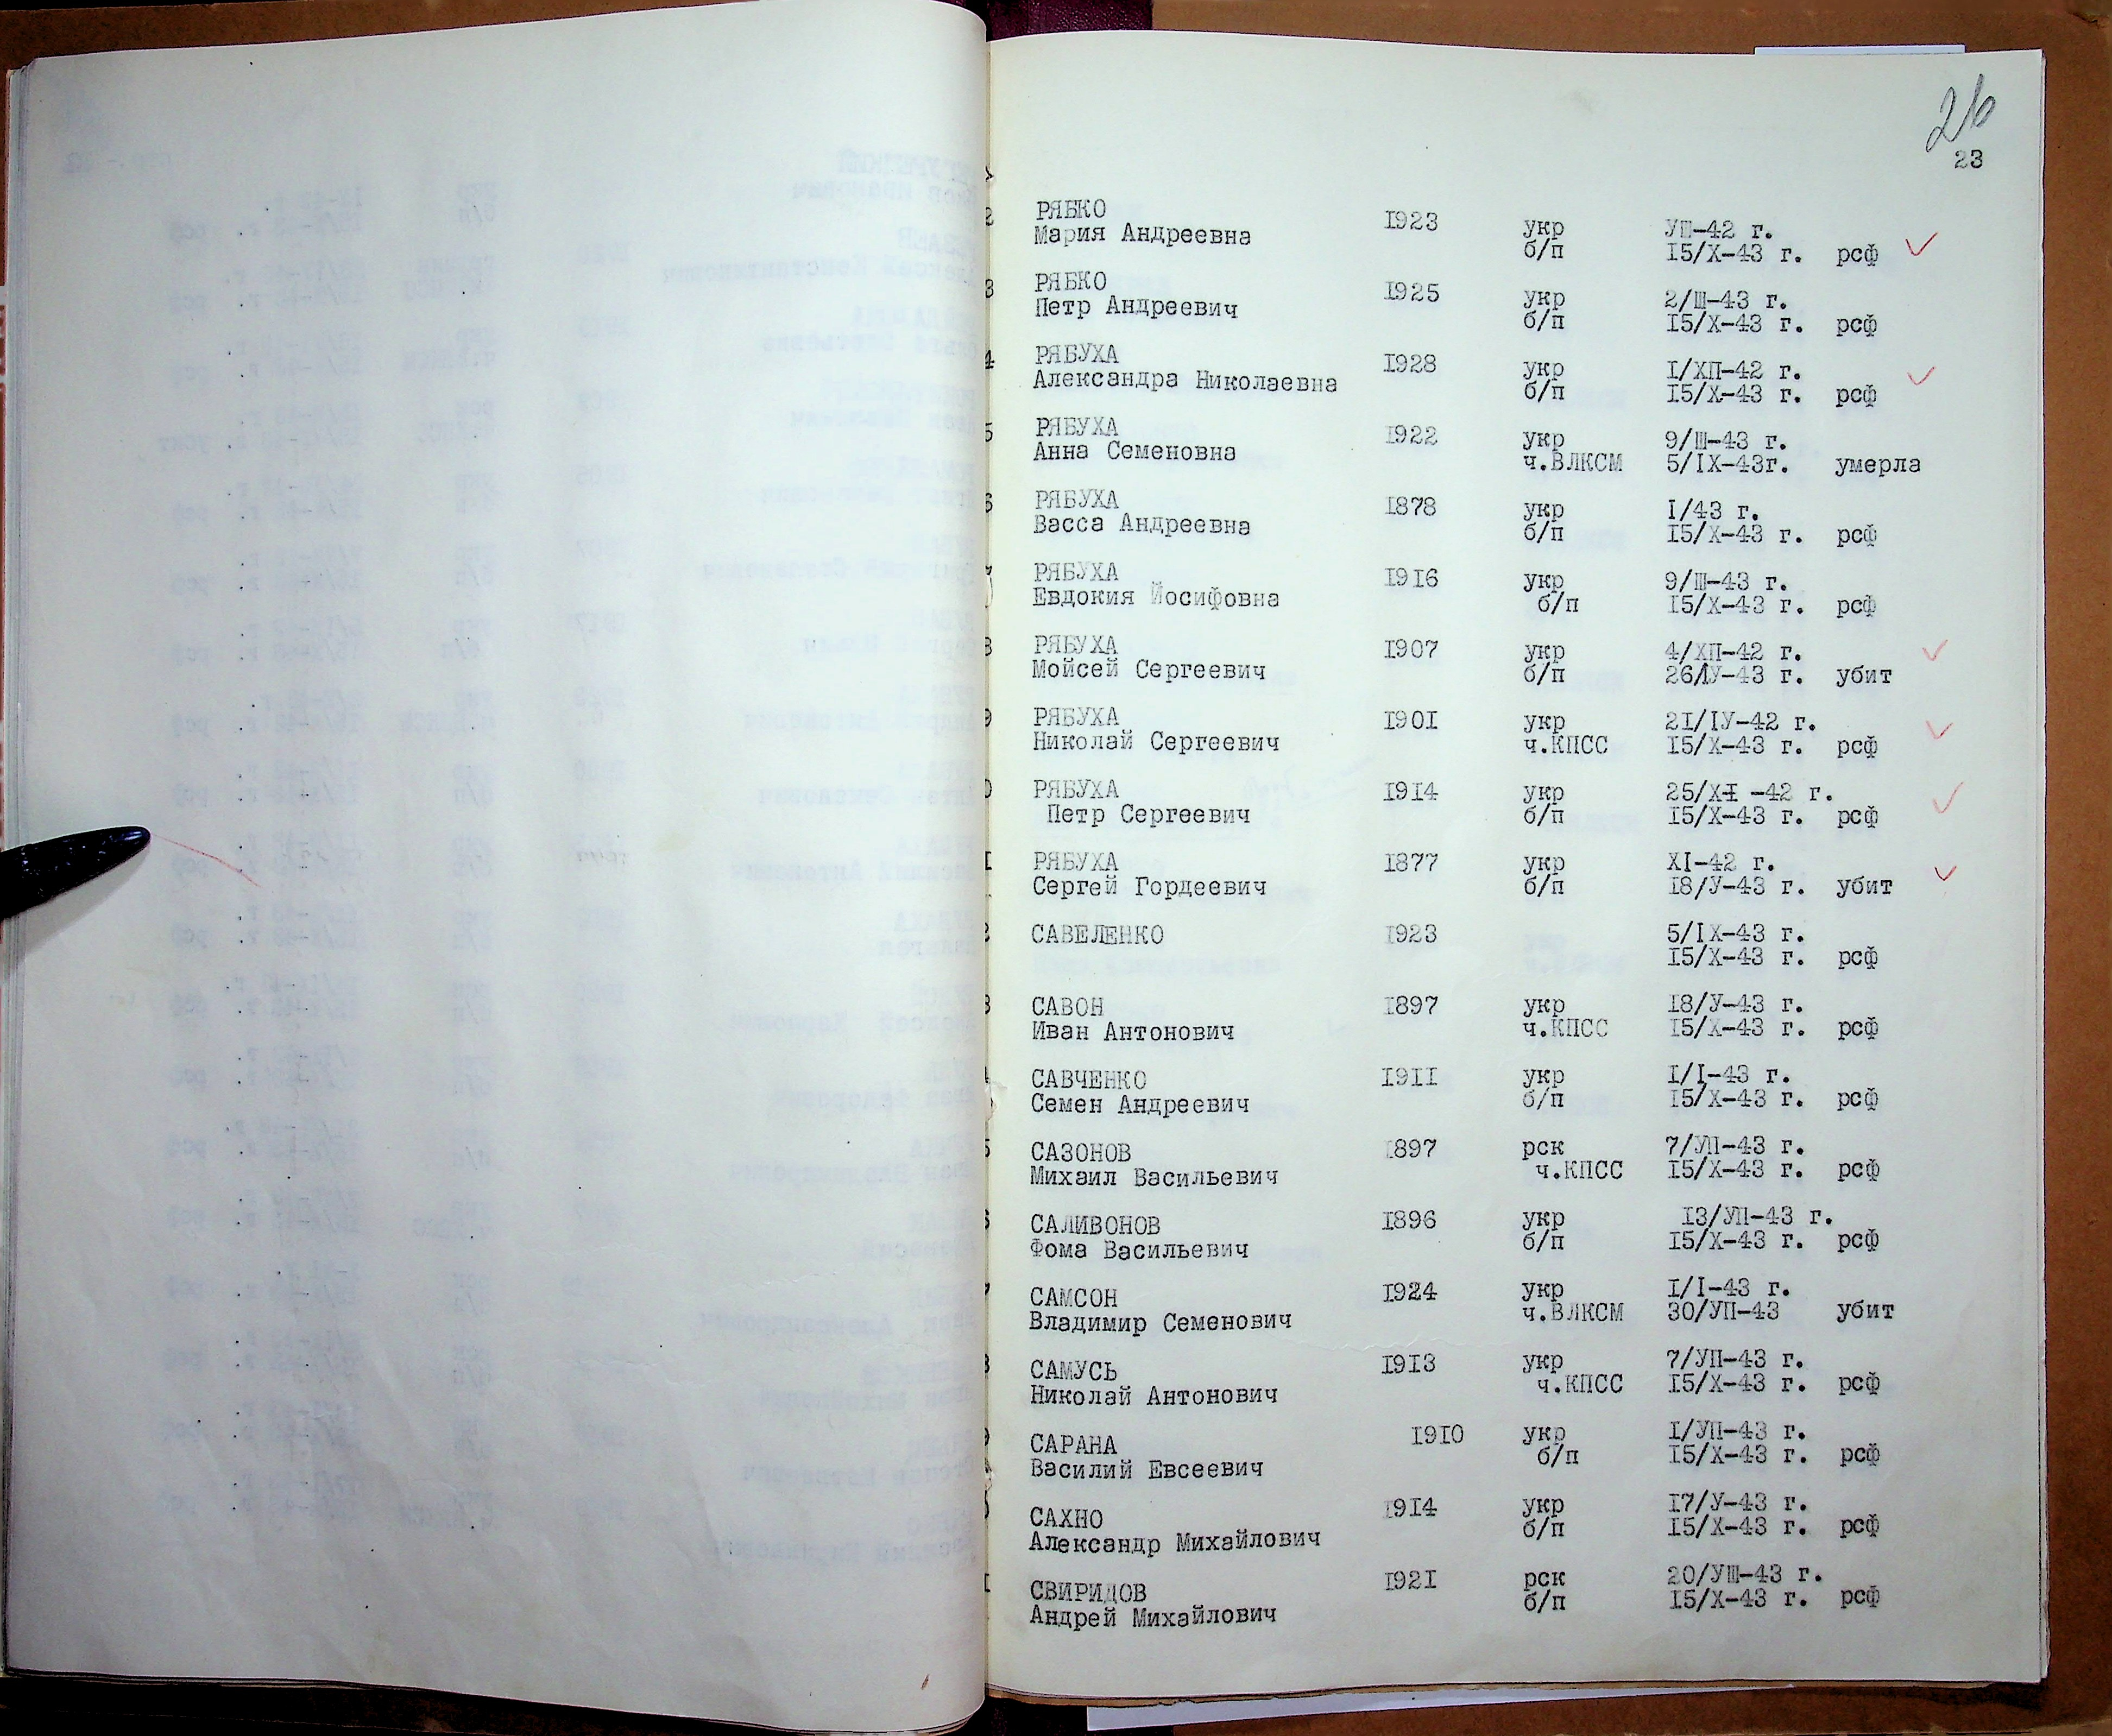 26
23
2 РЯБКО 1923 укр УП-42 г.
Мария Андреевна б/п 15/Х-43 г. рсф
3 РЯБКО 1925 укр 2/Ш-43 г.
Петр Андреевич б/п 15/Х-43 г. рсф
4 РЯБУХА 1928 укр I/ХП-42 г.
Александра Николаевна б/п 15/Х-43 г. рсф
5 РЯБУХА 1922 укр 9/Ш-43 г.
Анна Семеновна ч.ВЛКСМ 5/IX-43г. умерла
6 РЯБУХА 1878 укр I/43 г.
Васса Андреевна б/п 15/Х-43 г. рсф
РЯБУХА 1916 укр 9/Ш-43 г.
Евдокия Йосифовна б/п 15/Х-43 г. рсф
8 РЯБУХА 1907 укр 4/ХП-42 г.
Мойсей Сергеевич б/п 26/IУ-43 г. убит
9 РЯБУХА 1901 укр 21/IУ-42 г.
Николай Сергеевич ч.КПСС 15/Х-43 г. рсф
0 РЯБУХА 1914 укр 25/XI -42 г.
Петр Сергеевич б/п 15/Х-43 г. рсф
I РЯБУХА 1877 укр XI-42 г.
Сергей Гордеевич б/п 18/У-43 г. убит
2 САВЕЛЕНКО 1923 5/IX-43 г.
15/Х-43 г. рсф
3 САВОН 1897 укр 18/У-43 г.
Иван Антонович ч.КПСС 15/Х-43 г. рсф
САВЧЕНКО 1911 укр I/I-43 г.
Семен Андреевич б/п 15/Х-43 г. рсф
5 САЗОНОВ 1897 рск 7/УП-43 г.
Михаил Васильевич ч.КПСС 15/Х-43 г. рсф
6 САЛИВОНОВ 1896 укр 13/УП-43 г.
Фома Васильевич б/п 15/Х-43 г. рсф
САМСОН 1924 укр I/I-43 г.
Владимир Семенович ч.ВЛКСМ 30/УП-43 убит
8 САМУСЬ 1913 укр 7/УП-43 г.
Николай Антонович ч.КПСС 15/Х-43 г. рсф
9 САРАНА 1910 укр I/УП-43 г.
Василий Евсеевич б/п 15/Х-43 г. рсф
0 САХНО 1914 укр 17/У-43 г.
Александр Михайлович б/п 15/Х-43 г. рсф
I СВИРИДОВ 1921 рск 20/УШ-43 г.
Андрей Михайлович б/п 15/Х-43 г. рсф